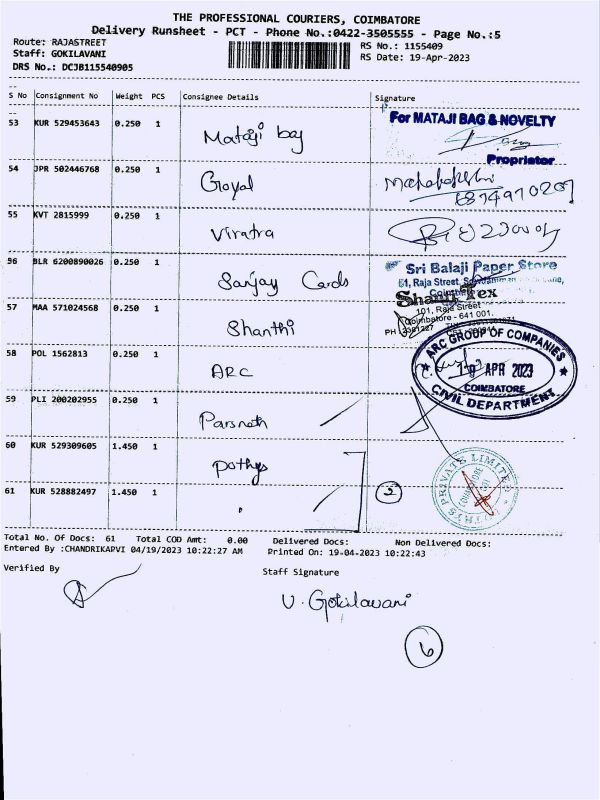 THE PROFESSIONAL COURIERS, COIMBATORE
Delivery Runsheet - PCT - Phone No.:0422-3505555 - Page No.:5
Route: RAJASTREET
RS No.: 1155409
Staff: GOKILAVANI
RS Date: 19-Apr-2023
DRS No.: DCJB115540905
S No Consignment No Weight PCS Consignee Details Signature
53 KUR 529453643 0.250 1 Mataji bag
For MATAJI BAG & NOVELTY
Proprietor
54 JPR 502446768 0.250 1 Goyal
55 KVT 2815999 0.250 1 Viratra
56 BLR 6200890026 0.250 1 Sanjay Cards
Sri Balaji Paper Store
61, Raja Street,
57 MAA 571024568 0.250 1 Shanthi
Tex
101, Raja Street
Coimbatore - 641 001.
58 POL 1562813 0.250 1 ARC
ARC GROUP OF COMPANIES
APR 2023
COIMBATORE
CIVIL DEPARTMENT
59 PLI 200202955 0.250 1 Parsnath
60 KUR 529309605 1.450 1 Pothys
PRIVATE LIMITED
61 KUR 528882497 1.450 1 "
2
Total No. Of Docs: 61 Total COD Amt: 0.00 Delivered Docs: Non Delivered Docs:
Entered By :CHANDRIKAPVI 04/19/2023 10:22:27 AM Printed On: 19-04-2023 10:22:43
Verified By
Staff Signature
V. Gokilavani
6